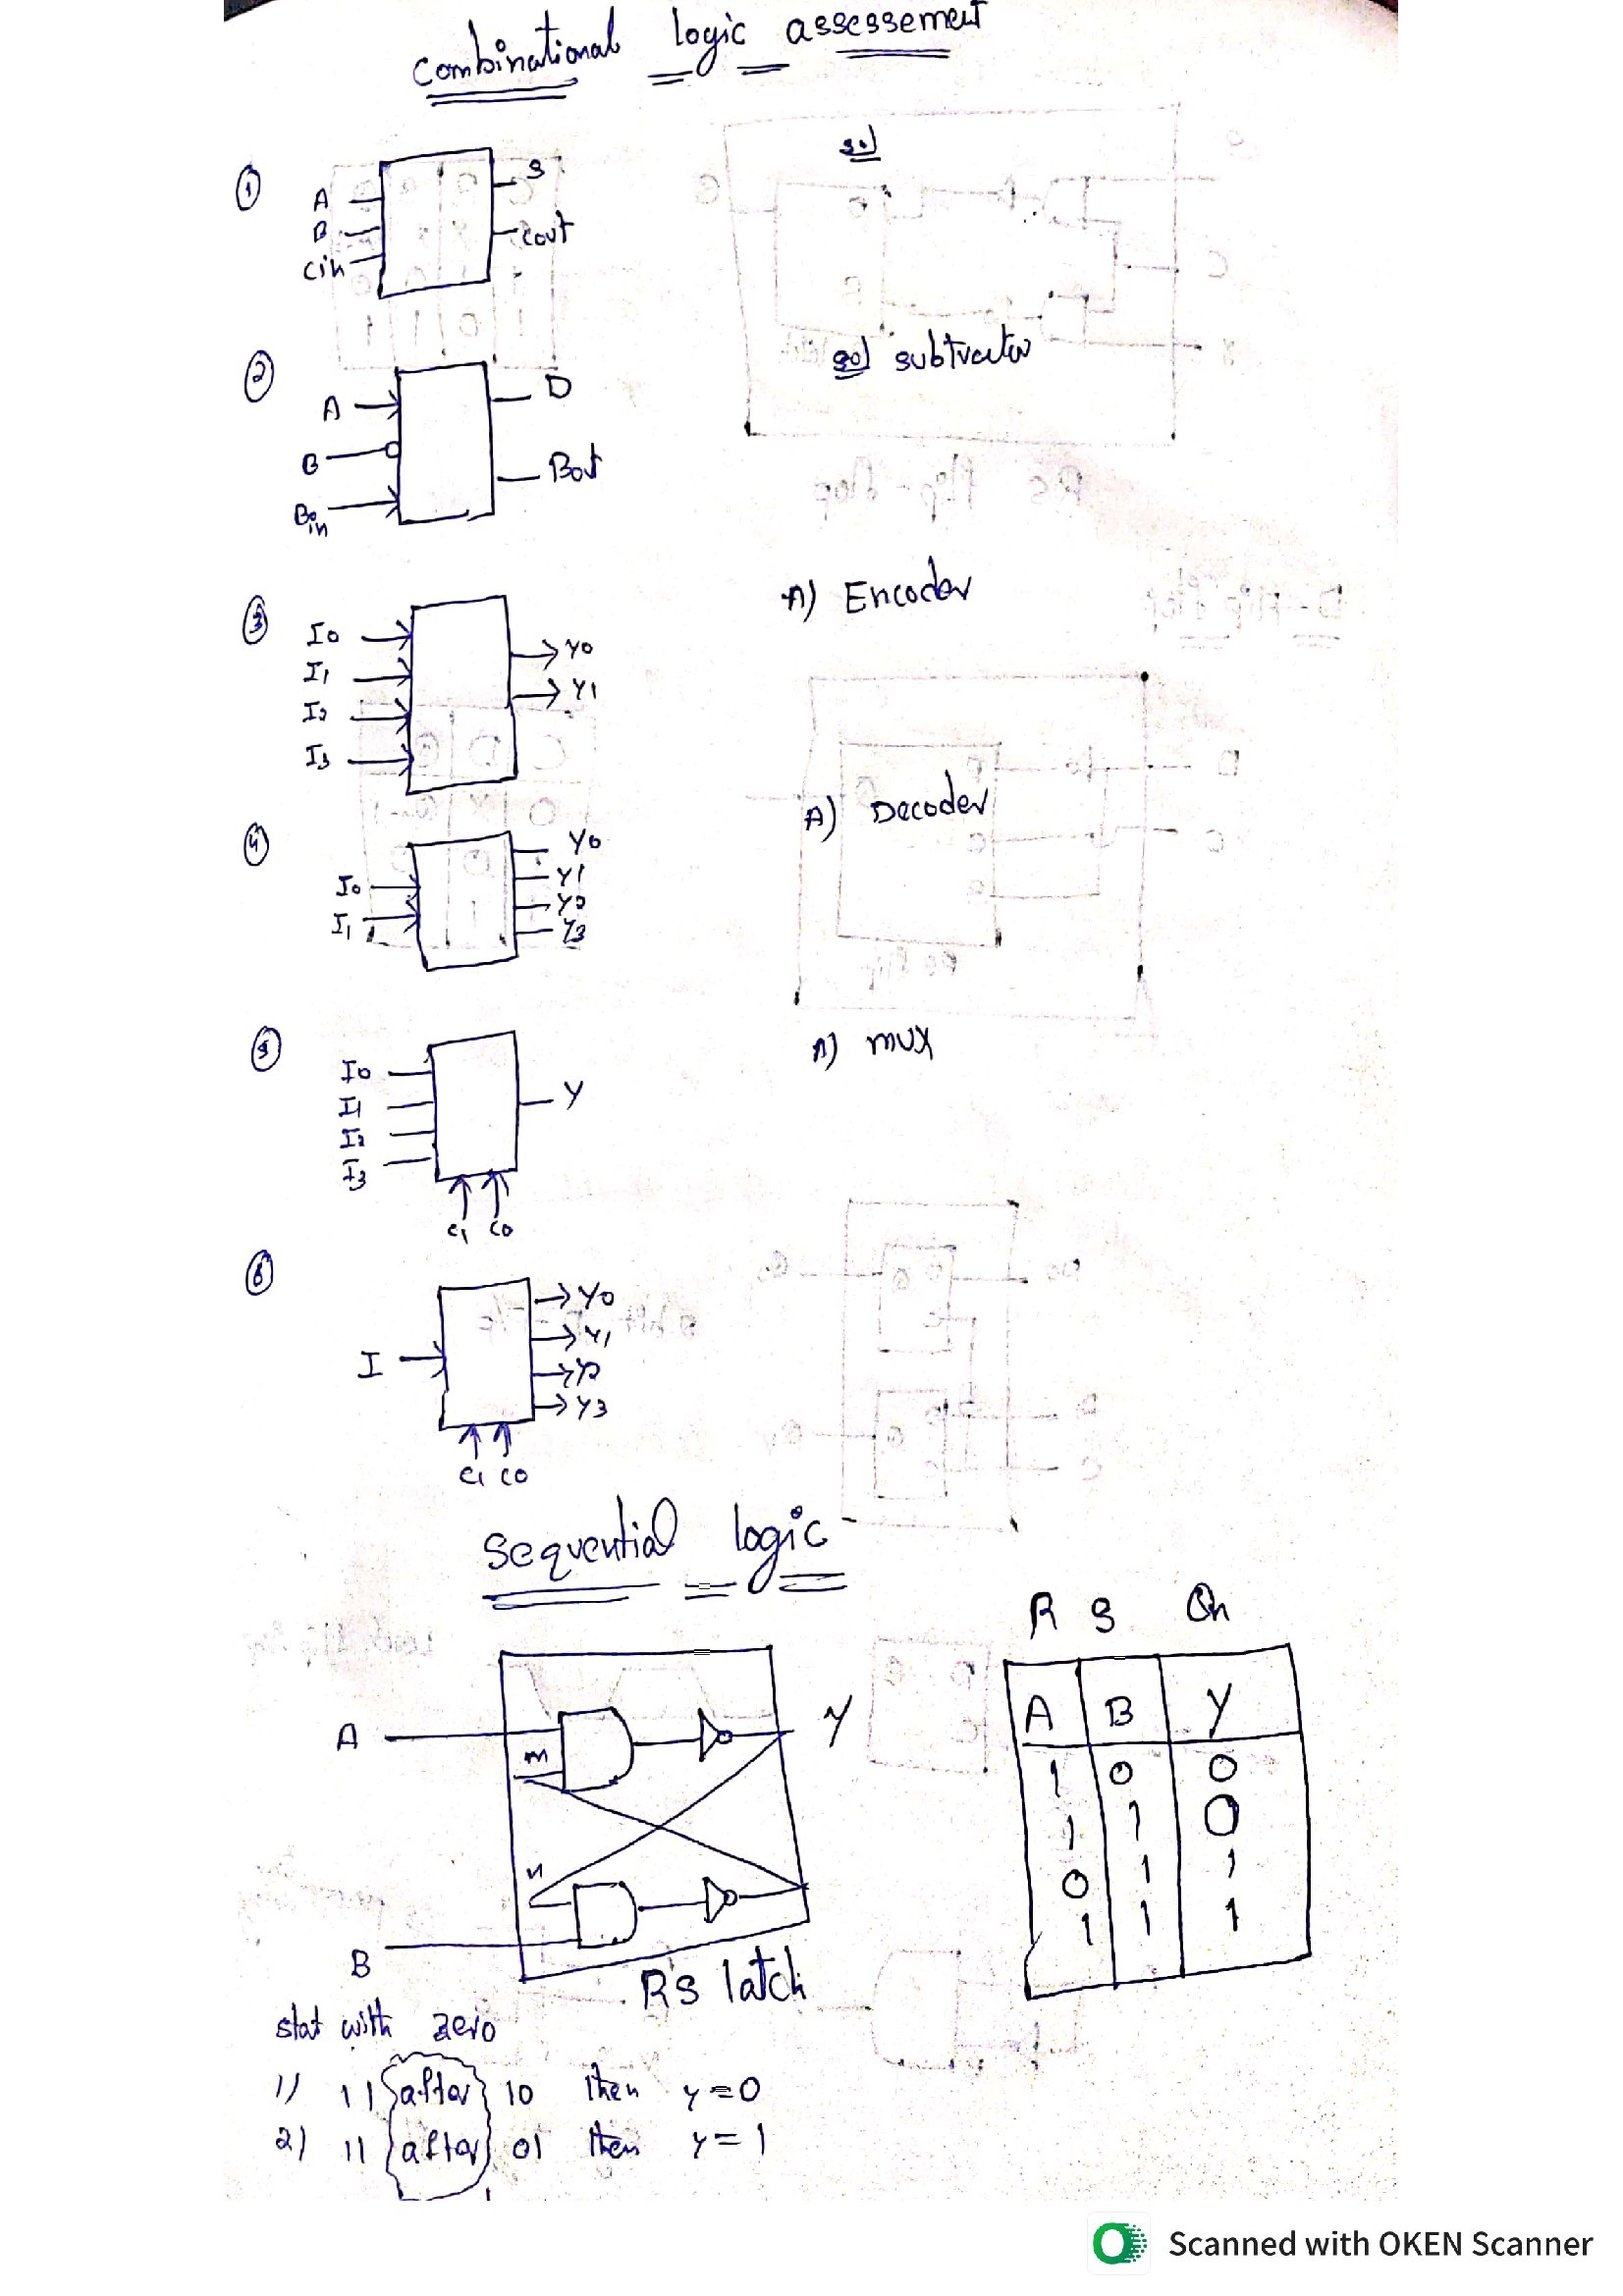 combinational logic assessement
① A B Cin S Cout
sol
② A B Bin D Bout
sol subtractor
③ I0 I1 I2 I3 Y0 Y1
A) Encoder
④ I0 I1 Y0 Y1 Y2 Y3
A) Decoder
⑤ I0 I1 I2 I3 Y C1 C0
A) mux
⑥ I Y0 Y1 Y2 Y3 C1 C0
sequential logic
R S Qn
A B Y
1 0 0
1 1 0
0 1 1
1 1 1
A m Y
n
B
RS latch
stat with zero
1) 11 after 10 then y=0
2) 11 after 01 then y=1
Scanned with OKEN Scanner